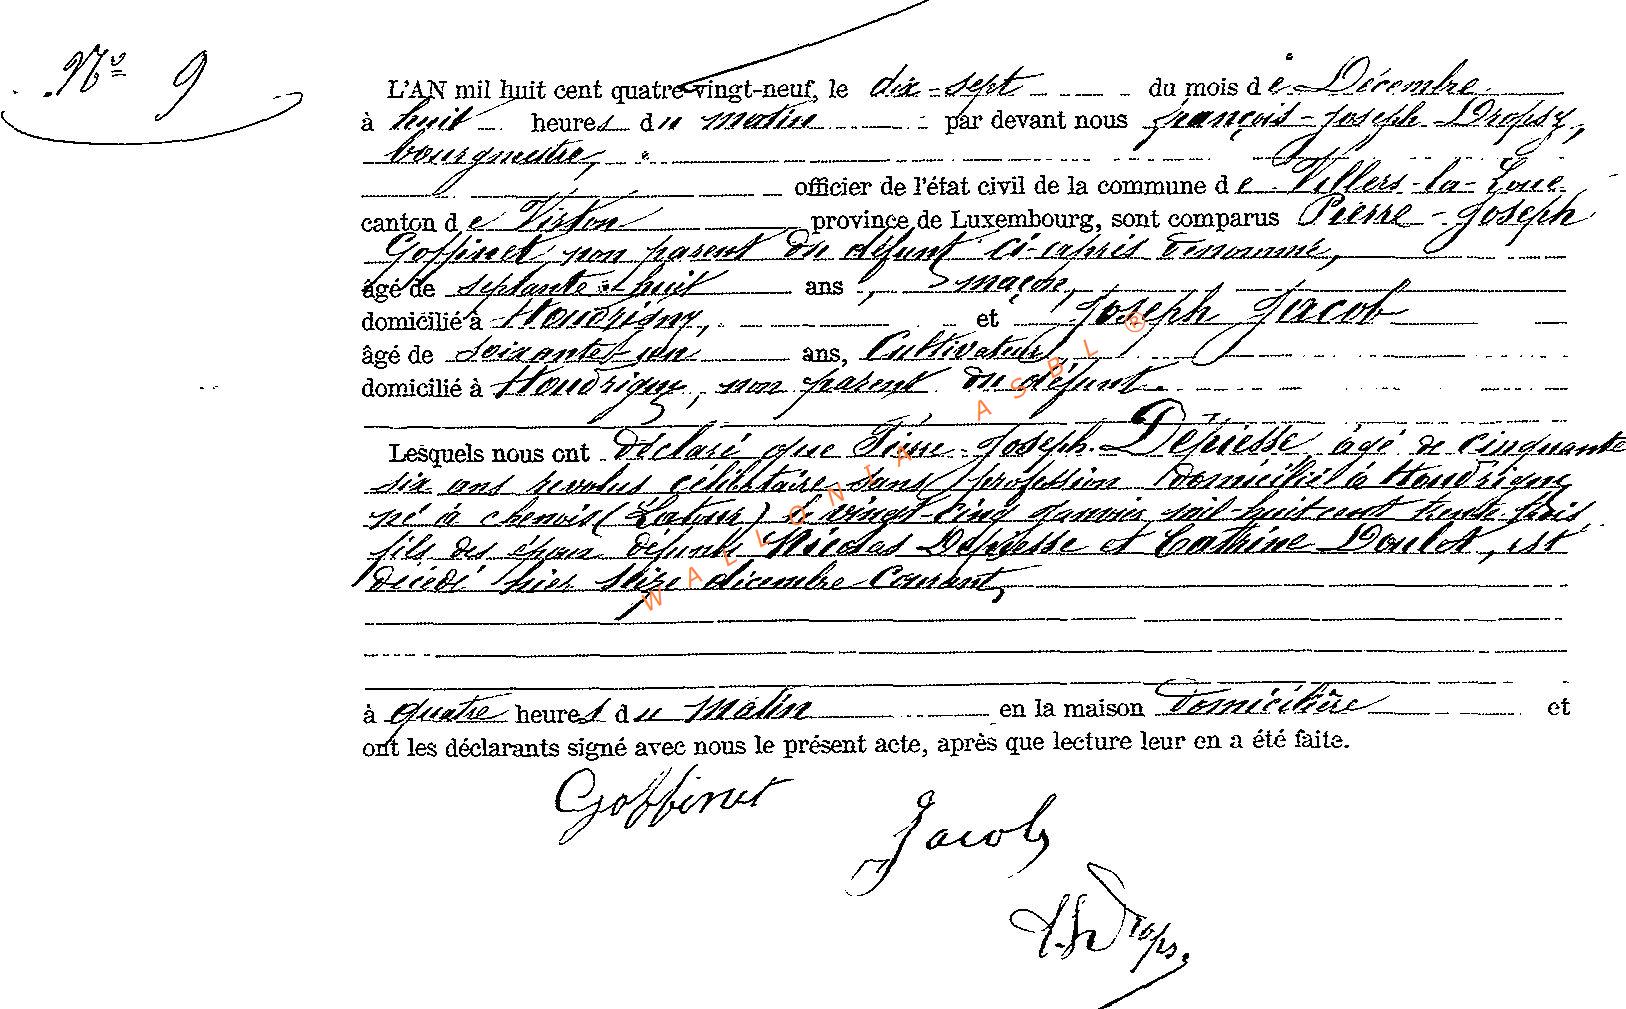 N° 9
L'AN mil huit cent quatre-vingt-neuf, le dix-sept du mois de Décembre
à huit heures du matin par devant nous françois-joseph Dropsy,
bourgmestre,
officier de l'état civil de la commune de Villers-la-Loue
canton de Virton province de Luxembourg, sont comparus Pierre-Joseph
Goffinet non parent du défunt ci-après dénommé,
âgé de septante-huit ans, maçon,
domicilié à Houdrigny, et Joseph Jacob
âgé de soixante-un ans, Cultivateur,
domicilié à Houdrigny, non parent du défunt.
Lesquels nous ont déclaré que Pierre-Joseph Dépiesse, âgé de cinquante
six ans révolus célibataire sans profession domicilié à Houdrigny
né à chenois (Latour) le vingt-cinq Janvier mil-huit cent trente-trois,
fils des époux défunts Nicolas Dépiesse et Cathrine Doulot, est
décédé hier seize décembre Courant,
à quatre heures du Matin en la maison domicilière et
ont les déclarants signé avec nous le présent acte, après que lecture leur en a été faite.
Goffinet
Jacob
Dropsy
WALLONIA ASBL ®